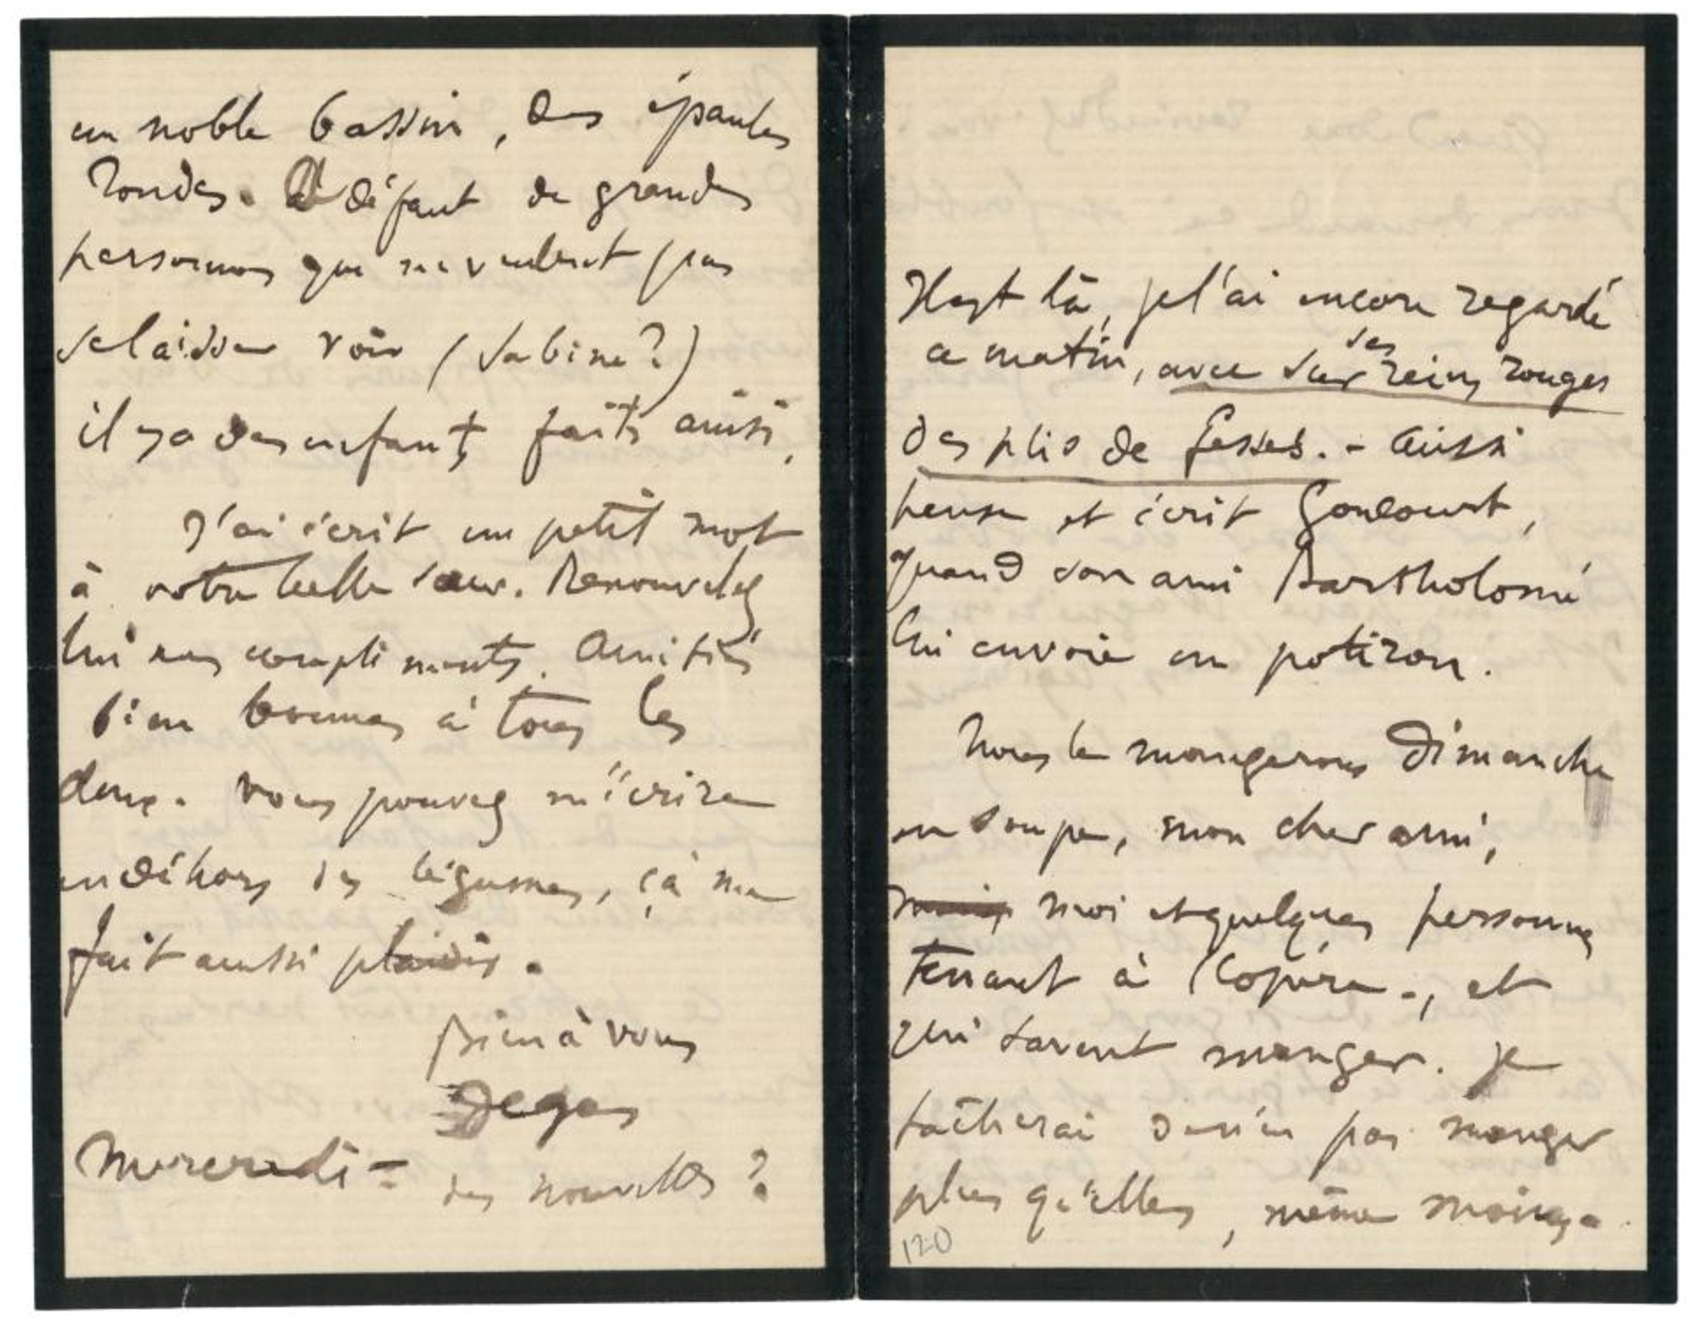 un noble bassin, des épaules
rondes. A défaut de grandes
personnes qui ne veulent pas
se laisser voir (Sabine?)
il y a des enfants faits ainsi.
J'ai écrit un petit mot
à votre belle sœur. Renouvelez
lui mes compliments. Amitiés
bien bonnes à tous les
deux. Vous pouvez m'écrire
en déhors des légumes, çà me
fait aussi plaisir.
Bien à vous
Degas
Mercredi = des nouvelles?
Il est là, je l'ai encore regardé
ce matin, avec sur ses reins rouges
des plis de fesses. - Ainsi
pense et écrit Goncourt,
quand son ami Bartholomé
lui envoie un potiron.
Nous le mangerons Dimanche
en soupe, mon cher ami,
moi et quelques personnes
tenant à l'opéra., et
qui savent manger. Je
tâcherai de n'en pas manger
plus qu'elles, même moins.
120